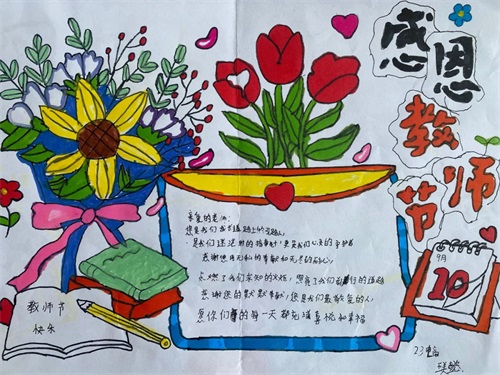 感恩
教师
节
亲爱的老师:
您是我们成长道路上的引路人,
是我们迷茫时的指南针,更是我们心灵的守护者
感谢您用无私的奉献和无尽的耐心,
点燃了我们求知的火焰,照亮了我们前行的道路
感谢您的默默奉献,您是我们最敬爱的人,
愿你们的每一天都充满喜悦和幸福
9月
10
教师节
快乐
23电商